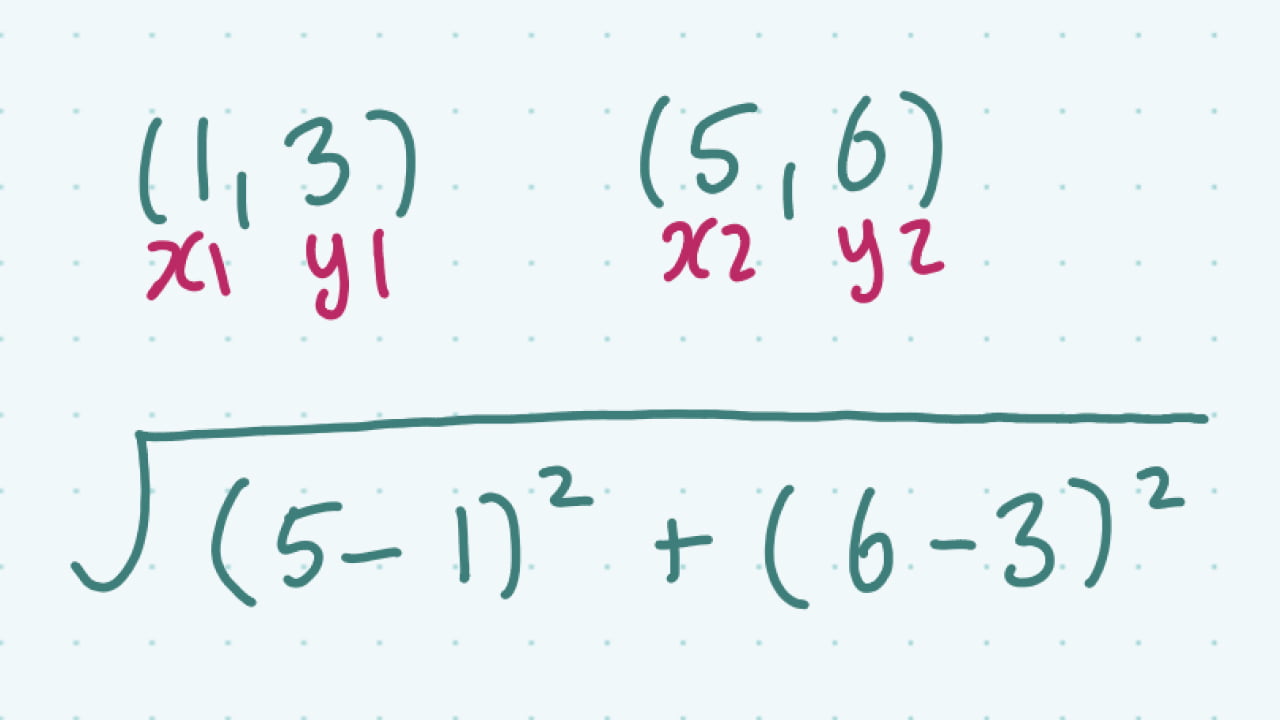 (1, 3) (5, 6)
x1 y1 x2 y2
√(5-1)² + (6-3)²